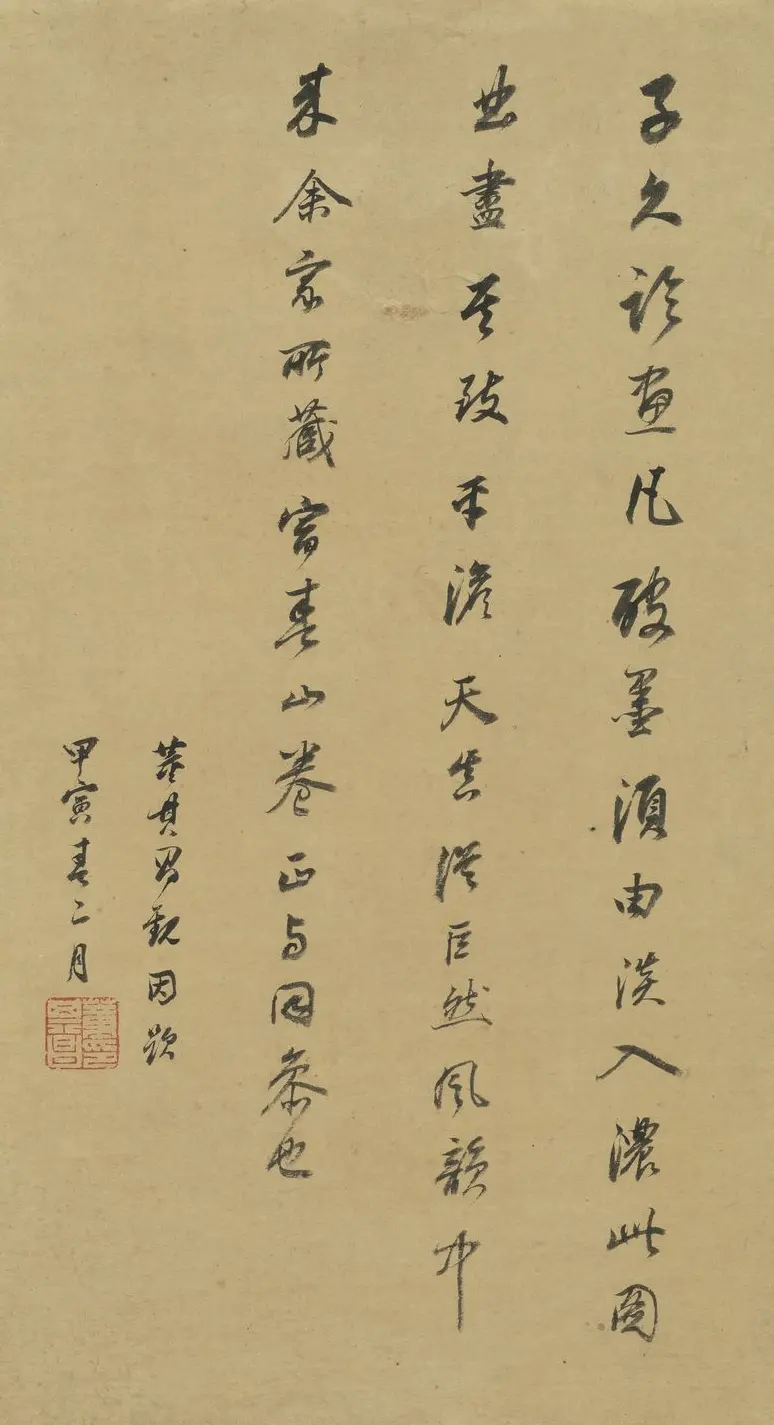 子久論畫凡破墨須由淡入濃此圖
曲盡其致平澹天真從巨然風韻中
来余家所藏富春山卷正与同參也
董其昌觀因題
甲寅春二月
董其昌印